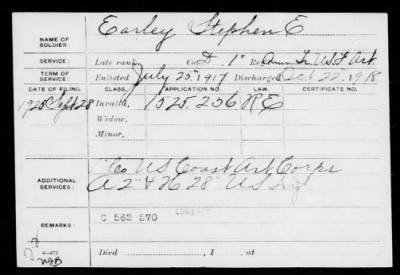 NAME OF SOLDIER: Earley Stephen E
SERVICE: Late rank, Co. D. 1" Reg Amm Tr. U.S.F Art
TERM OF SERVICE: Enlisted July 25, 1917 Discharged Oct 22, 1918
DATE OF FILING. CLASS. APPLICATION NO. LAW. CERTIFICATE NO.
1925 Sept 28 Invalid, 1525.256 R E
Widow,
Minor,
ADDITIONAL SERVICES: " Co US Coast Art Corps
A 2" & 26 28" US Inf
REMARKS: C 563 570
Died , 1 , at